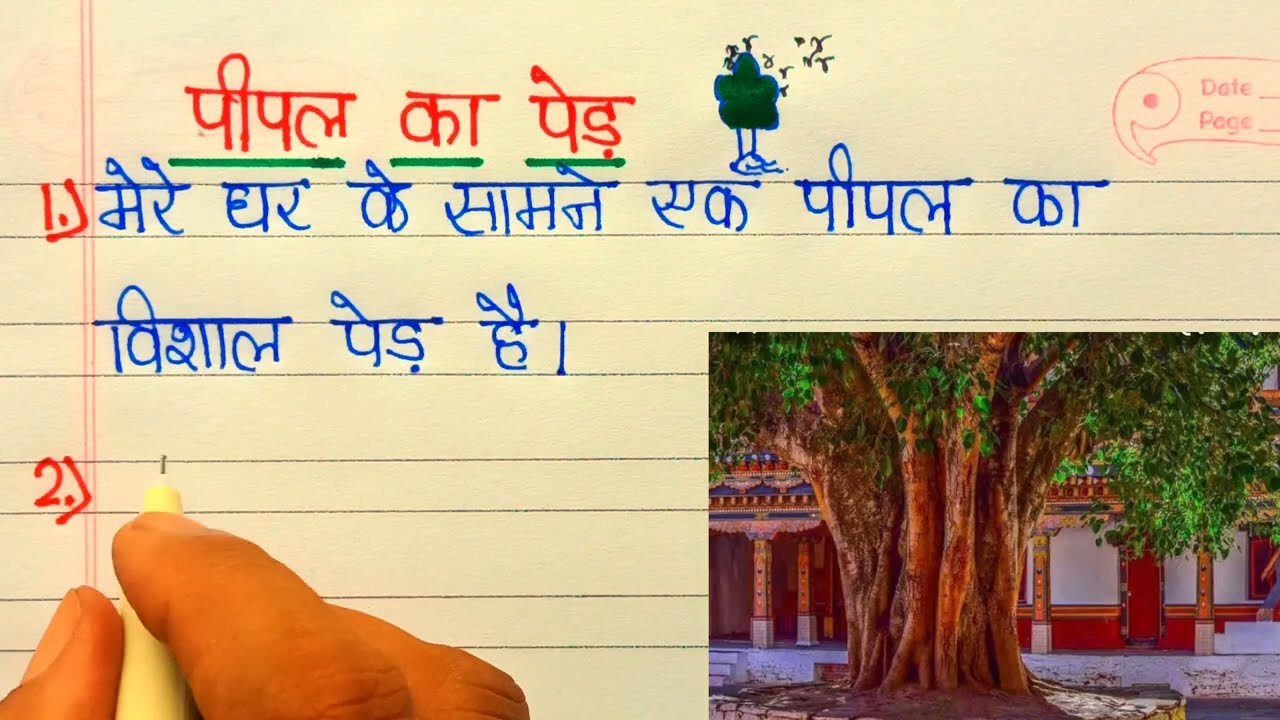 पीपल का पेड़
Date
Page
1.) मेरे घर के सामने एक पीपल का
विशाल पेड़ है।
2.)